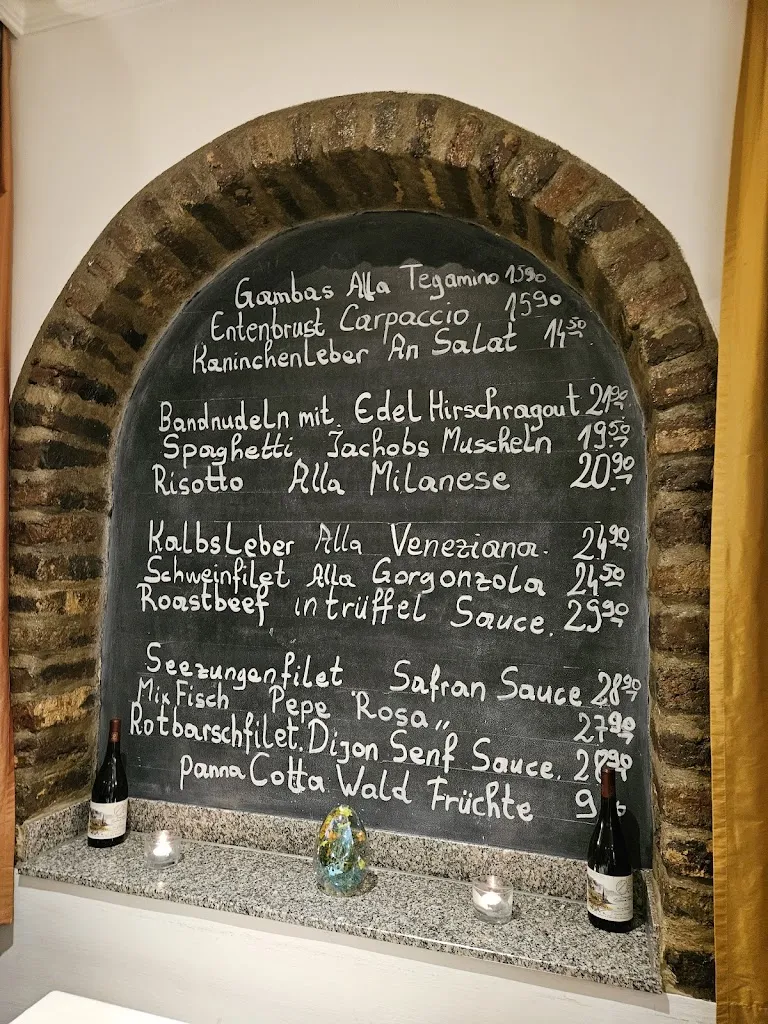 Gambas Alla Tegamino 15 90
Entenbrust Carpaccio 15 90
Kaninchenleber An Salat 14 50
Bandnudeln mit. Edel Hirschragout 21 90
Spaghetti Jachobs Muscheln 19 50
Risotto Alla Milanese 20 90
KalbsLeber Alla Veneziana. 24 90
Schweinfilet Alla Gorgonzola 24 50
Roastbeef in trüffel Sauce. 29 90
Seezungenfilet Safran Sauce 28 90
Mix Fisch Pepe "Rosa„ 27 90
Rotbarschfilet. Dijon Senf Sauce.
panna Cotta Wald Früchte